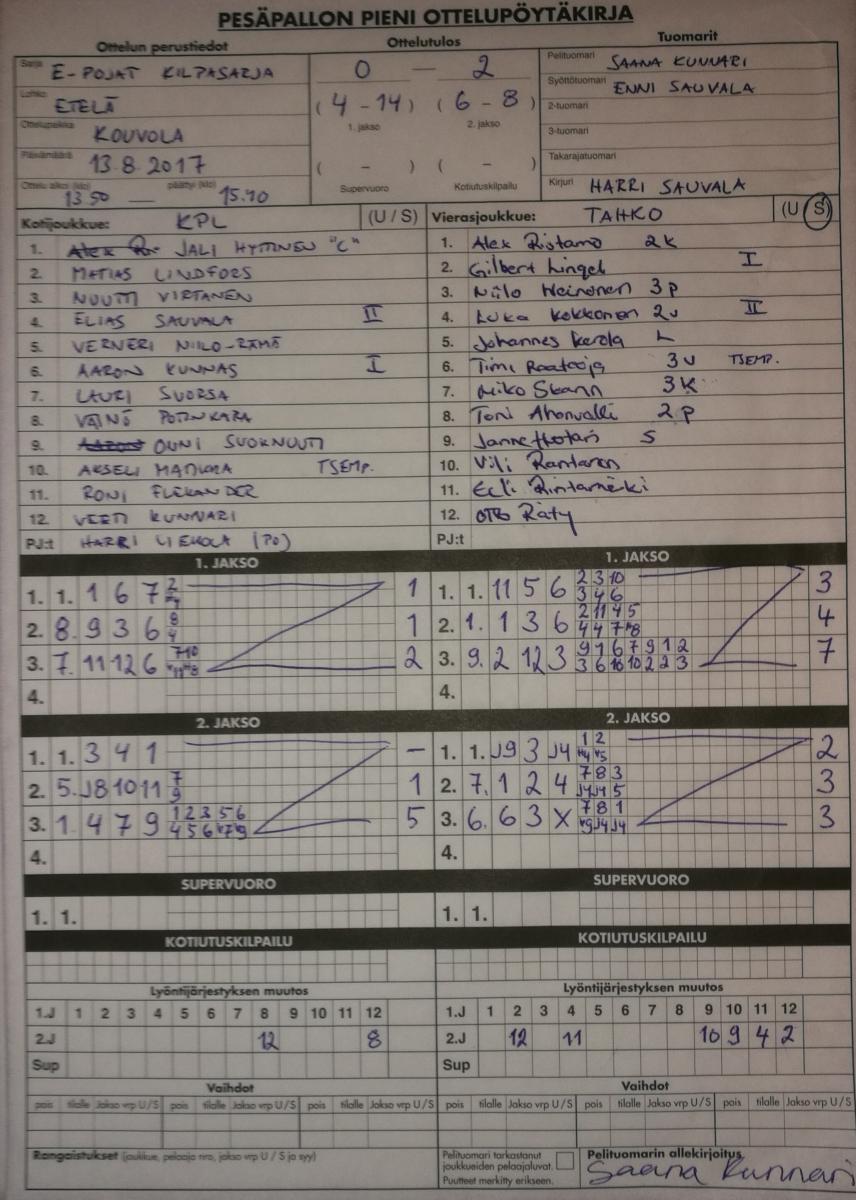 PESÄPALLON PIENI OTTELUPÖYTÄKIRJA
Ottelun perustiedot
Ottelutulos
Tuomarit
Sarja E-POJAT KILPASARJA
Lohko ETELÄ
Ottelupaikka KOUVOLA
Päivämäärä 13.8.2017
Ottelu alkoi (klo) 13 50 — päättyi (klo) 15.40
0 — 2
(4 - 14) (6 - 8)
1. jakso 2. jakso
( - ) ( - )
Supervuoro Kotiutuskilpailu
Pelituomari SAANA KUNNARI
Syöttötuomari ENNI SAUVALA
2-tuomari
3-tuomari
Takarajatuomari
Kirjuri HARRI SAUVALA
Kotijoukkue: KPL (U / S)
1. JALI HYTTINEN "C"
2. MATIAS LINDFORS
3. NUUTTI VIRTANEN
4. ELIAS SAUVALA II
5. VERNERI NIILO-RÄMÄ
6. AARON KUNNAS I
7. LAURI SUORSA
8. VÄINÖ
9. OUNI SUOKNUUTI
10. AKSELI TSEMP.
11. RONI FLEKANDER
12. VERTI KUNNARI
PJ:t HARRI LIEKOLA (PO)
Vierasjoukkue: TAHKO (U / S)
1. Alex Ristamo 2K
2. Gilbert Lingel I
3. Niilo Heinonen 3p
4. Luka Kekkonen 2v II
5. Johannes Kerola L
6. Timi 3v TSEMP.
7. Miko 3K
8. Toni 2p
9. Janne S
10. Vili Rantanen
11. Eeli Rintamäki
12. Otto Räty
PJ:t
1. JAKSO
1. 1. 1 6 7 1
2. 8. 9 3 6 8 4 1
3. 7. 11 12 6 2
4.
1. JAKSO
1. 1. 11 5 6 2 3 10 3 4 6 3
2. 1. 1 3 6 2 11 4 5 4 4 7 4
3. 9. 2 12 3 9 1 6 7 9 1 2 3 6 10 10 2 2 3 7
4.
2. JAKSO
1. 1. 3 4 1 –
2. 5. J8 10 11 7 9 1
3. 1 4 7 9 1 2 3 5 6 4 5 6 5
4.
2. JAKSO
1. 1. J9 3 J4 1 2 2
2. 7. 1 2 4 7 8 3 J4 J4 5 3
3. 6. 6 3 X 7 8 1 J4 J4 3
4.
SUPERVUORO
1. 1.
SUPERVUORO
1. 1.
KOTIUTUSKILPAILU
KOTIUTUSKILPAILU
Lyöntijärjestyksen muutos
1.J 1 2 3 4 5 6 7 8 9 10 11 12
2.J 12 8
Sup
Lyöntijärjestyksen muutos
1.J 1 2 3 4 5 6 7 8 9 10 11 12
2.J 12 11 10 9 4 2
Sup
Vaihdot
pois tilalle Jakso vrp U/S pois tilalle Jakso vrp U/S pois tilalle Jakso vrp U/S
Vaihdot
pois tilalle Jakso vrp U/S pois tilalle Jakso vrp U/S pois tilalle Jakso vrp U/S
Rangaistukset (joukkue, pelaaja nro, jakso vrp U / S ja syy)
Pelituomari tarkastanut
joukkueiden pelaajaluvat.
Puutteet merkitty erikseen.
Pelituomarin allekirjoitus
Saana Kunnari